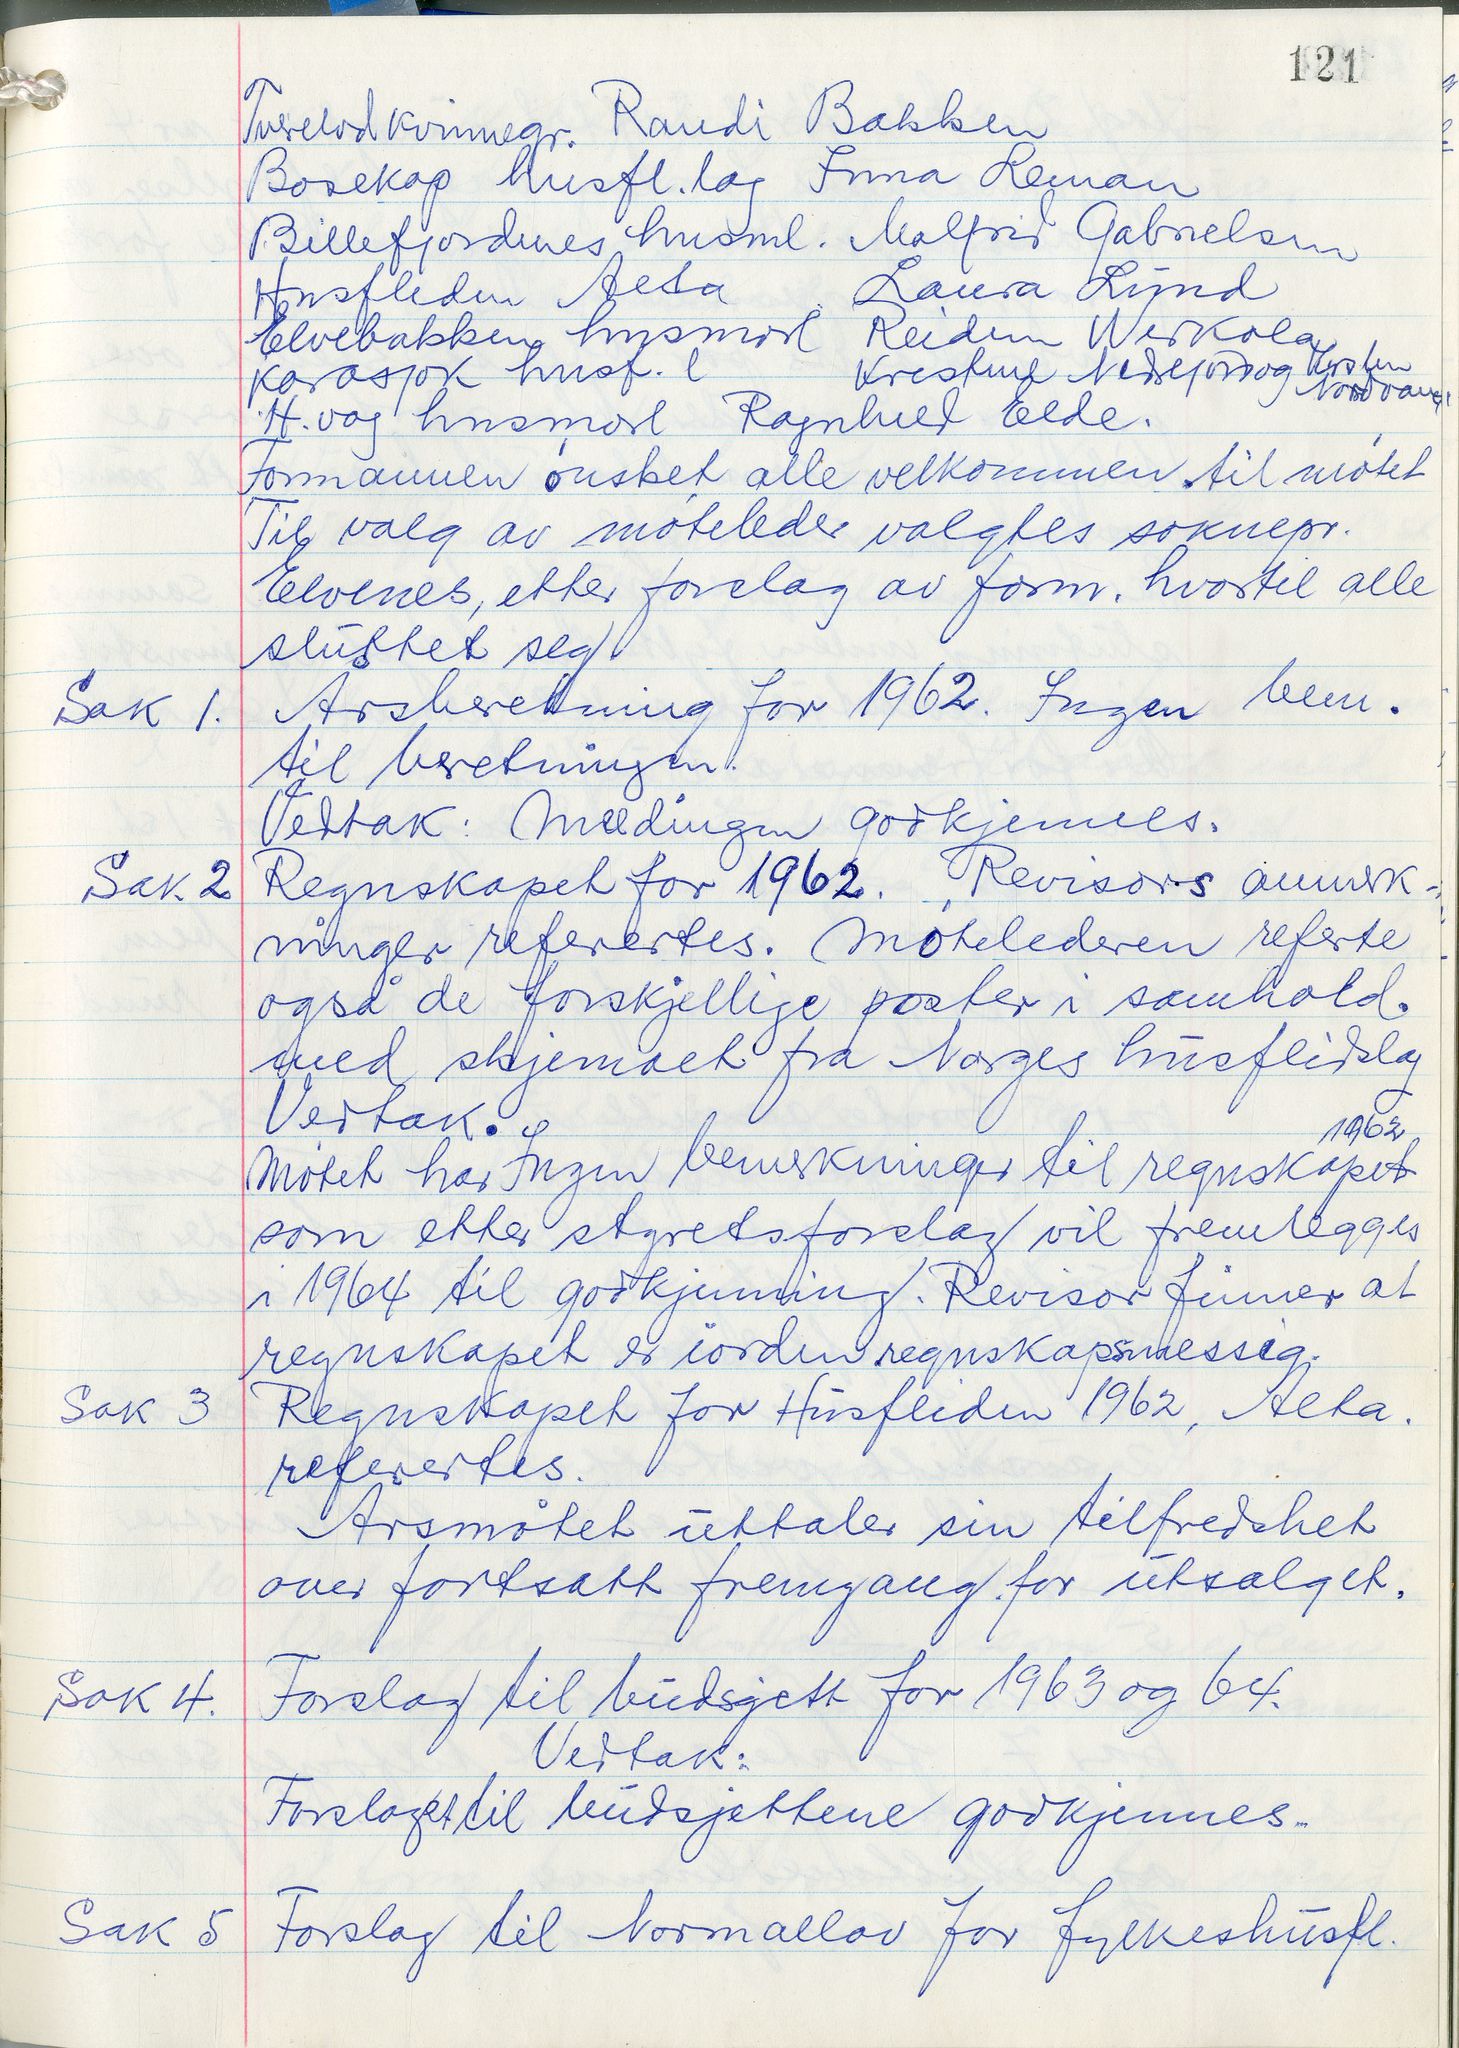 121
Tverelvd kvinnegr. Randi Bakken
Bosekop husfl.lag Inna Leman
Billefjordnes husml. Malfrid Gabrielsen
Husfliden Alta Laura Lund
Elvebakken husmorl Reidun Werkola
Karasjok husf.l Kristine Nedrejord og Kirsten
Nordvang
H.våg husmorl Ragnhild Elde.
Formannen ønsket alle velkommen til møtet
Til valg av møteleder valgtes soknepr.
Elvenes, etter forslag av form. hvortil alle
sluttet seg
Sak 1. Årsberetning for 1962. Ingen bem.
til beretningen.
Vedtak: Meldingen godkjennes.
Sak 2 Regnskapet for 1962. Revisors anmerk-
ninger referertes. Møtelederen referte
også de forskjellige poster i samhold.
med skjemaet fra Norges husflidslag
Vedtak.
1962
Møtet har Ingen bemerkninger til regnskapet
som etter styretsforslag vil fremlegges
i 1964 til godkjenning. Revisor finner at
regnskapet er iorden regnskapsmessig.
Sak 3 Regnskapet for Husfliden 1962, Alta.
referertes.
Årsmøtet uttaler sin tilfredshet
over fortsatt fremgang for utsalget.
Sak 4. Forslag til budsjett for 1963 og 64.
Vedtak:
Forslaget til budsjettene godkjennes.
Sak 5 Forslag til Normallov for fylkeshusfl.